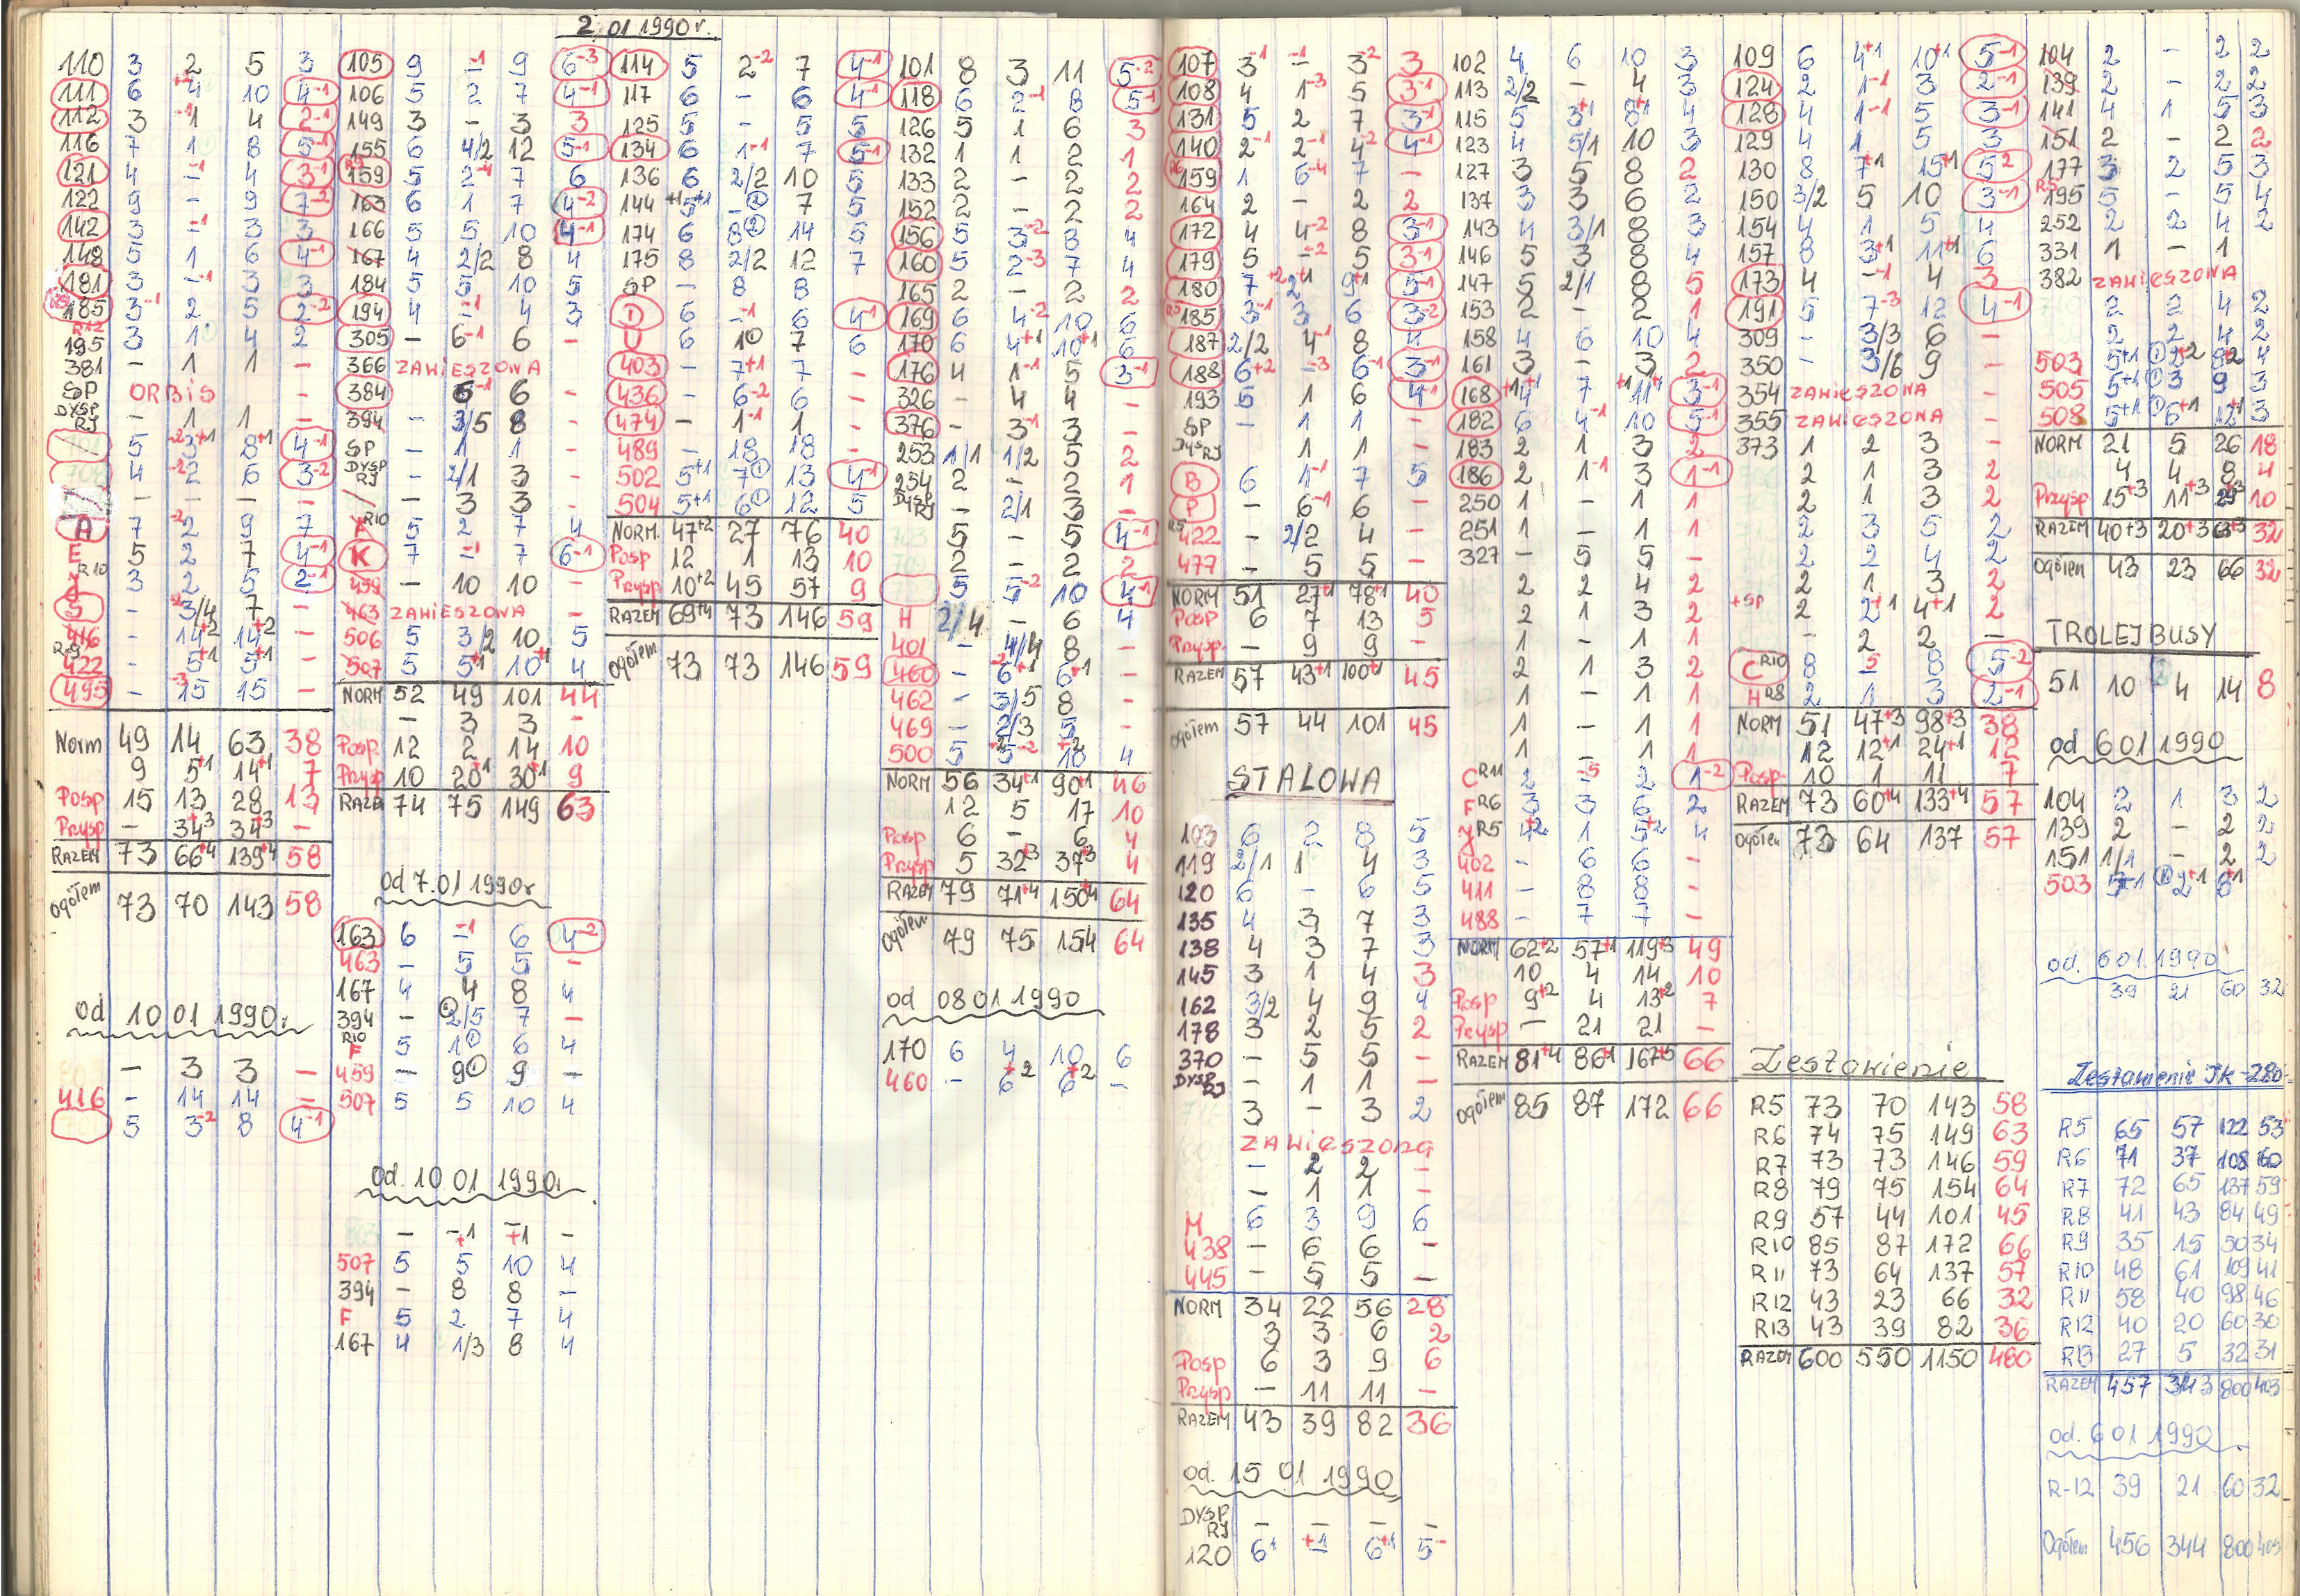 2.01 1990r.
110 3 2 5 3
111 6 +4 10 4-1
112 3 -1 4 2-1
116 7 1 8 5-1
121 4 -1 4 3-1
122 9 - 9 7-2
142 3 -1 3 3
148 5 1 6 4-1
181 3 -1 3 3
185 3-1 2 5 2-2
R12 195 3 1 4 2
381 - 1 1 -
SP ORBIS -
DYSP RJ - 1 1 -
5 -2 3+1 8+1 4-1
4 -2 2 6 3-2
- - - -
A 7 -2 2 9 7
E 5 2 7 4-1
R10 J 3 2 5 2-1
S - 3/4 7 -
416 - 14+2 14+2 -
R9 422 - 5+1 5+1 -
495 - -3 15 15 -
Norm 49 14 63 38
9 5+1 14+1 7
Posp 15 13 28 13
Przysp - 34+3 34+3 -
RAZEM 73 66+4 139+4 58
Ogółem 73 70 143 58
od 10 01 1990r
- 3 3 -
416 - 14 14 -
5 3-2 8 4-1
105 9 -1 9 6-3
106 5 2 7 4-1
149 3 - 3 3
155 6 4/2 12 5-1
R9 159 5 2-1 7 6
163 6 1 7 4-2
166 5 5 10 4-1
167 4 2/2 8 4
184 5 5 10 5
194 4 -1 4 3
305 - 6-1 6 -
366 ZAWIESZONA
384 - 6-1 6 -
394 - 3/5 8 -
SP - 1 1 -
DYSP RJ - 2/1 3 -
- 3 3 -
R10 5 2 7 4
K 7 -1 7 6-1
459 - 10 10 -
463 ZAWIESZONA -
506 5 3/2 10 5
507 5 5+1 10+1 4
NORM 52 49 101 44
- 3 3 -
Posp 12 2 14 10
Przysp 10 20+1 30+1 9
RAZEM 74 75 149 63
od 7.01 1990r
163 6 -1 6 4-2
463 - 5 5 -
167 4 4 8 4
394 - 2/5 7 -
R10 F 5 1 6 4
459 - 9 9 -
507 5 5 10 4
od 10 01 1990r
- -+1 -+1 -
507 5 5 10 4
394 - 8 8 -
F 5 2 7 4
167 4 1/3 8 4
114 5 2-2 7 4-1
117 6 - 6 4-1
125 5 - 5 5
134 6 1-1 7 5-1
136 6 2/2 10 5
144 +1 5+1 - 7 5
174 6 8 14 5
175 8 2/2 12 7
SP - 8 8
D 6 -1 6 4-1
U 6 10 7 6
403 - 7+1 7 -
436 - 6-2 6 -
474 - 1-1 1 -
489 - 18 18 -
502 5+1 7 13 4-1
504 5+1 6 12 5
NORM. 47+2 27 76 40
Posp 12 1 13 10
Przysp 10+2 45 57 9
RAZEM 69+4 73 146 59
Ogółem 73 73 146 59
101 8 3 11 5-2
118 6 2-1 8 5-1
126 5 1 6 3
132 1 1 2 1
133 2 - 2 2
152 2 - 2 2
156 5 3-2 8 4
160 5 2-3 7 4
165 2 - 2 2
169 6 4-2 10 6
170 6 4+1 10+1 6
176 4 1-1 5 3-1
326 - 4 4 -
376 - 3-1 3 -
253 1/1 1/2 5 2
254 2 - 2 1
DYSP RJ - 2/1 3 -
5 - 5 4-1
2 - 2 2
5 5-2 10 4-1
H 2/4 - 6 4
401 - 4/4 8 -
460 - 6+1 6+1 -
462 - 3/5 8 -
469 - 2/3 5 -
500 5 5-2 10 4
NORM 56 34+1 90+1 46
12 5 17 10
Posp 6 - 6 4
Przysp 5 32+3 37+3 4
RAZEM 79 71+4 150+4 64
Ogółem 79 75 154 64
od 08 01 1990
170 6 4 10 6
460 - 6+2 6+2 -
107 3-1 -1 3-2 3
108 4 1-3 5 3-1
131 5 2 7 3-1
140 2-1 2-1 4-2 4-1
159 1 6-4 7 -
164 2 - 2 2
172 4 4-2 8 3-1
179 5 -2 5 3-1
180 7+2 2+1 9+1 5-1
R5 185 3-1 3 6 3-2
187 2/2 4-1 8 4
188 6+2 -3 6-1 3-1
193 5 1 6 4-1
SP - 1 1 -
DYSP RJ 1 1 -
B 6 1-1 7 5
P - 6-1 6 -
R5 422 - 2/2 4 -
477 - 5 5 -
NORM 51 27+1 78+1 40
Posp 6 7 13 5
Przysp - 9 9 -
RAZEM 57 43+1 100+1 45
Ogółem 57 44 101 45
STALOWA
103 6 2 8 5
119 2/1 1 4 3
120 6 - 6 5
135 4 3 7 3
138 4 3 7 3
145 3 1 4 3
162 3/2 4 9 4
178 3 2 5 2
370 - 5 5 -
DYSP RJ - 1 1 -
3 - 3 2
ZAWIESZONA
- 2 2 -
- 1 1 -
M 6 3 9 6
438 - 6 6 -
445 - 5 5 -
NORM 34 22 56 28
3 3 6 2
Posp 6 3 9 6
Przysp - 11 11 -
RAZEM 43 39 82 36
od. 15 01 1990
DYSP RJ - - - -
120 6+1 +1 6+1 5-
102 4 6 10 3
113 2/2 - 4 3
115 5 3+1 8+1 4
123 4 5/1 10 3
127 3 5 8 2
137 3 3 6 2
143 4 3/1 8 3
146 5 3 8 4
147 5 2/1 8 5
153 2 - 2 1
158 4 6 10 4
161 3 - 3 2
168 +1 4+1 7 +1 11+1 3-1
182 6 4-1 10 5-1
183 2 1 3 2
186 2 1-1 3 1-1
250 1 - 1 1
251 1 - 1 1
327 - 5 5 -
2 2 4 2
2 1 3 2
1 - 1 1
2 1 3 2
1 - 1 1
1 - 1 1
1 - 1 1
C R11 2 -5 2 1-2
F R6 3 3 6 2
J R5 4+2 1 5+2 4
402 - 6 6 -
411 - 8 8 -
488 - 7 7 -
NORM 62+2 57+1 119+3 49
10 4 14 10
Posp 9+2 4 13+2 7
Przysp - 21 21 -
RAZEM 81+4 86+1 167+5 66
Ogółem 85 87 172 66
109 6 4+1 10+1 5-1
124 2 1-1 3 2-1
128 4 1-1 5 3-1
129 4 1 5 3
130 8 7+1 15+1 5-2
150 3/2 5 10 3-1
154 4 1 5 4
157 8 3+1 11+1 6
173 4 -1 4 3
191 5 7-3 12 4-1
309 - 3/3 6 -
350 - 3/6 9 -
354 ZAWIESZONA
355 ZAWIESZONA -
373 1 2 3 -
2 1 3 2
2 1 3 2
2 3 5 2
2 2 4 2
2 1 3 2
+SP 2 2+1 4+1 2
- 2 2 -
C R10 8 -5 8 5-2
H R8 2 1 3 2-1
NORM 51 47+3 98+3 38
12 12+1 24+1 12
Posp. 10 1 11 7
RAZEM 73 60+4 133+4 57
Ogółem 73 64 137 57
Zestawienie
R5 73 70 143 58
R6 74 75 149 63
R7 73 73 146 59
R8 79 75 154 64
R9 57 44 101 45
R10 85 87 172 66
R11 73 64 137 57
R12 43 23 66 32
R13 43 39 82 36
RAZEM 600 550 1150 480
104 2 - 2 2
139 2 - 2 2
141 4 1 5 3
151 2 - 2 2
177 3 2 5 3
R5 195 5 - 5 4
252 2 2 4 2
331 1 - 1
382 ZAWIESZONA
2 2 4 2
2 2 4 2
503 5+1 2+2 8+2 4
505 5+1 3 9 3
508 5+1 6+1 12+1 3
NORM 21 5 26 18
4 4 8 4
Przysp 15+3 11+3 29+3 10
RAZEM 40+3 20+3 63+3 32
Ogółem 43 23 66 32
TROLEJBUSY
51 10 4 14 8
od 6 01 1990
104 2 1 3 2
139 2 - 2 2
151 1/1 - 2 2
503 5+1 2+1 6+1
od. 6 01. 1990
39 21 60 32
Zestawienie JK-280
R5 65 57 122 53
R6 71 37 108 60
R7 72 65 137 59
R8 41 43 84 49
R9 35 15 50 34
R10 48 61 109 41
R11 58 40 98 46
R12 40 20 60 30
R13 27 5 32 31
RAZEM 457 343 800 403
od. 6 01 1990
R-12 39 21 60 32
Ogółem 456 344 800 405